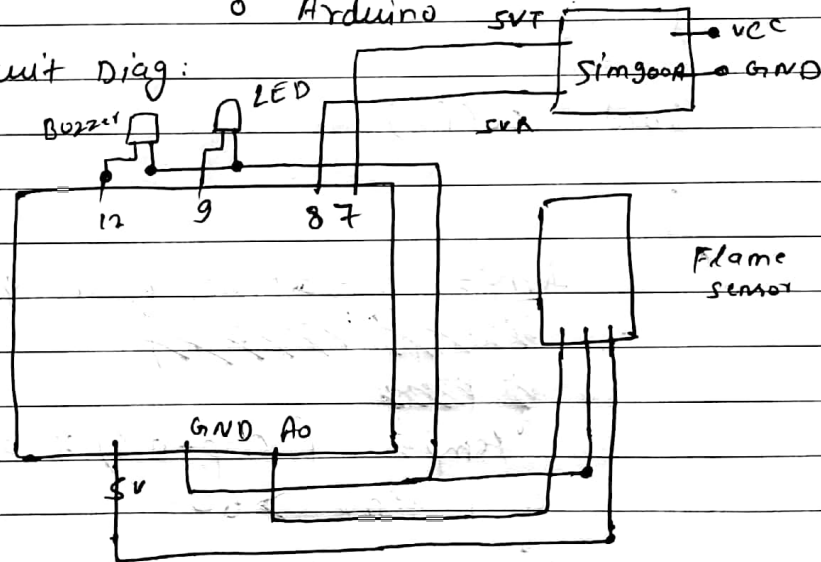 Arduino
uit Diag:
5VT
VCC
Sim900A
GND
5VR
Buzzer
LED
12
9
8
7
Flame
sensor
GND
A0
5V